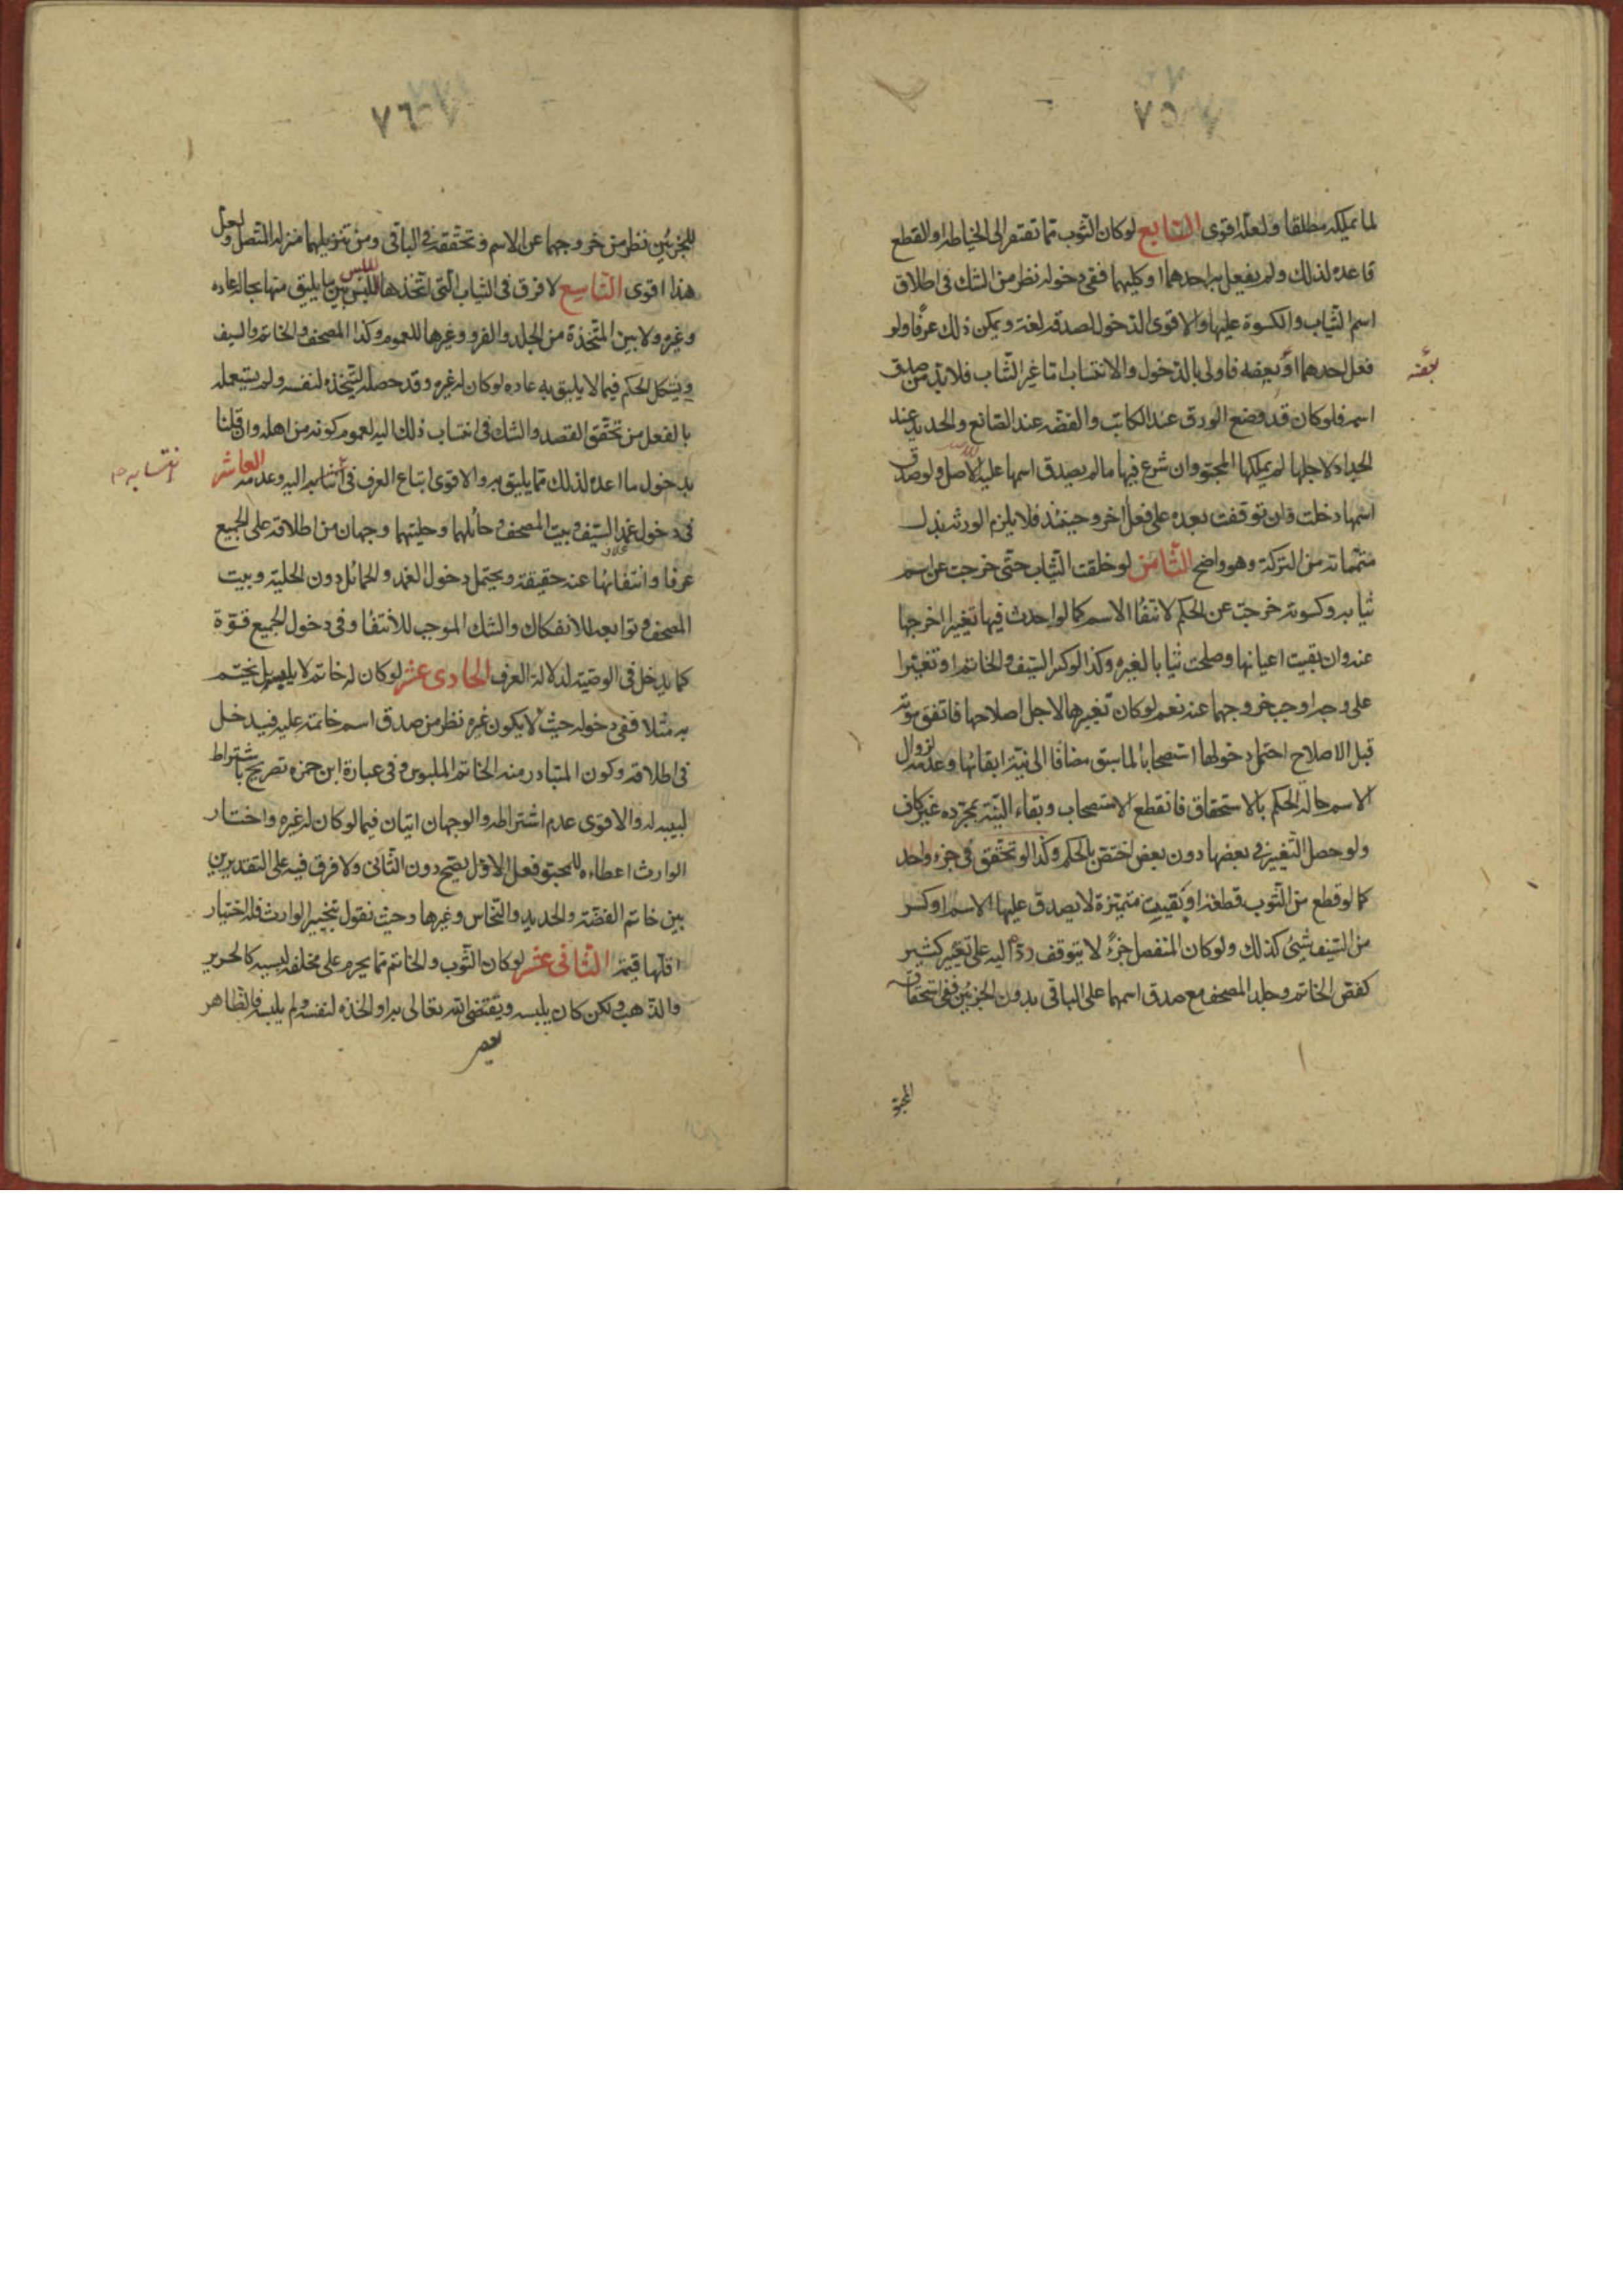 ٧٥
لما يملكه مطلقا ولعله اقوى السابع لو كان الثوب مما تفتقر الى الخياطة او القطع
فاعده لذلك ولم يفعل به احدهما او كليهما ففى دخوله نظر من الشك فى اطلاق
اسم الثياب والكسوة عليها والاقوى الدخول لصدقه لغة ويمكن ذلك عرفا ولو
فعل احدهما او بعضه فاولى بالدخول والانتساب اما غير الثياب فلا بد من صدق
بعضه
اسمه فلو كان قد وضع الورق عند الكاتب والفضه عند الصانع والحديد عند
الحداد لاجلها لم يملكها المحبو وان شرع فيها ما لم يصدق اسمها عليه للاصل ولو صدق
اسمها دخلت وان توقفت بعده على فعل اخر وحينئذ فلا يلزم الورثه بذل
متمماته من التركة وهو واضح الثامن لو خلقت الثياب حتى خرجت عن اسم
ثيابه وكسوته خرجت عن الحكم لانتفاء الاسم كما لو احدث فيها تغييرا اخرجها
عنه وان بقيت اعيانها وصلحت ثيابا لغيره وكذا لو كسر السيف والخاتم او تغيرا
على وجه اوجب خروجهما عنه نعم لو كان تغييرها لاجل اصلاحها فاتفق موته
قبل الاصلاح احتمل دخولها استصحابا لما سبق مضافا الى نية ابقائها وعدمه لزوال
الاسم حالة الحكم بالاستحقاق فانقطع الاستصحاب وبقاء النية بمجرده غير كاف
ولو حصل التغيير فى بعضها دون بعض اختص بالحكم وكذا لو تحقق فى جزء واحد
كما لو قطع من الثوب قطعة او بقيت متميزة لا يصدق عليها الاسم او كسر
من السيف شئ كذلك ولو كان المنفصل جزء لا يتوقف رده اليه على تغيير كثير
كفص الخاتم وجلد المصحف مع صدق اسمهما على الباقى بدون الجزئين ففى استحقاق
المحبو
٧٦
للجزئين نظر من خروجهما عن الاسم وتحققه فى الباقى ومن تنزيلهما منزلة المتصل ولعل
هذا اقوى التاسع لا فرق فى الثياب التى اتخذها للبس بين ما يليق منها بحاله عاده
وغيره ولا بين المتخذة من الجلد والفرو وغيرها للعموم وكذا المصحف والخاتم والسيف
ويشكل الحكم فيما لا يليق به عاده لو كان لغيره وقد حصله ليتخذه لنفسه ولم يستعمله
بالفعل من تحقق القصد والشك فى انتساب ذلك اليه لعموم كونه من اهله وان قلنا
بدخول ما اعده لذلك مما يليق به والاقوى اتباع العرف فى انتسابه اليه وعدمه العاشر
انتسابه
فى دخول غمد السيف وبيت المصحف وحمائلهما وحليتهما وجهان من اطلاقه على الجميع
عرفا وانتفائها عنه حقيقة ويحتمل دخول الغمد والحمائل دون الحلية وبيت
المصحف وتوابعه للانفكاك والشك الموجب للانتفاء وفى دخول الجميع قوة
كما يدخل فى الوصية لدلالة العرف الحادى عشر لو كان له خاتم لا يلبسه بل يختم
به مثلا ففى دخوله حيث لا يكون غيره نظر من صدق اسم خاتمه عليه فيدخل
فى اطلاقه وكون المتبادر منه الخاتم الملبوس وفى عبارة ابن حمزه تصريح باشتراط
لبسه له والاقوى عدم اشتراطه والوجهان اتيان فيما لو كان له غيره واختار
الوارث اعطاءه للمحبو فعلى الاول يصح دون الثانى ولا فرق فيه على التقديرين
بين خاتم الفضة والحديد والنحاس وغيرها وحيث نقول بتخيير الوارث فله اختيار
اقلها قيمة الثانى عشر لو كان الثوب والخاتم مما يحرم على مخلفه لبسه كالحرير
والذهب ولكن كان يلبسه ويقتضى الله تعالى به او اتخذه لنفسه ولم يلبسه فالظاهر